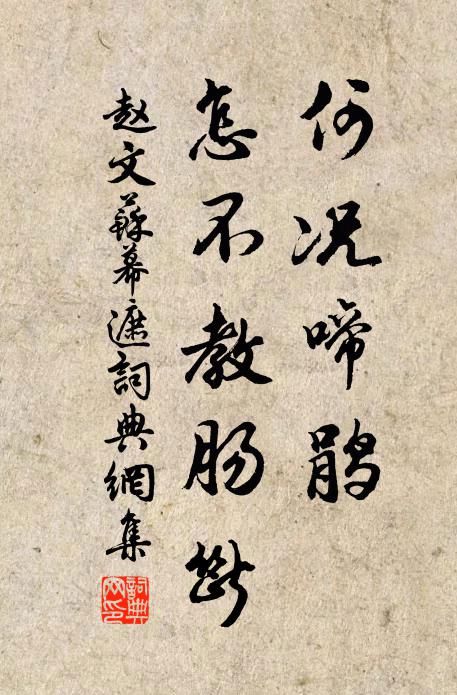 何况啼鹃
怎不教肠断
赵文蘇幕遮詞典網集
詞典网印